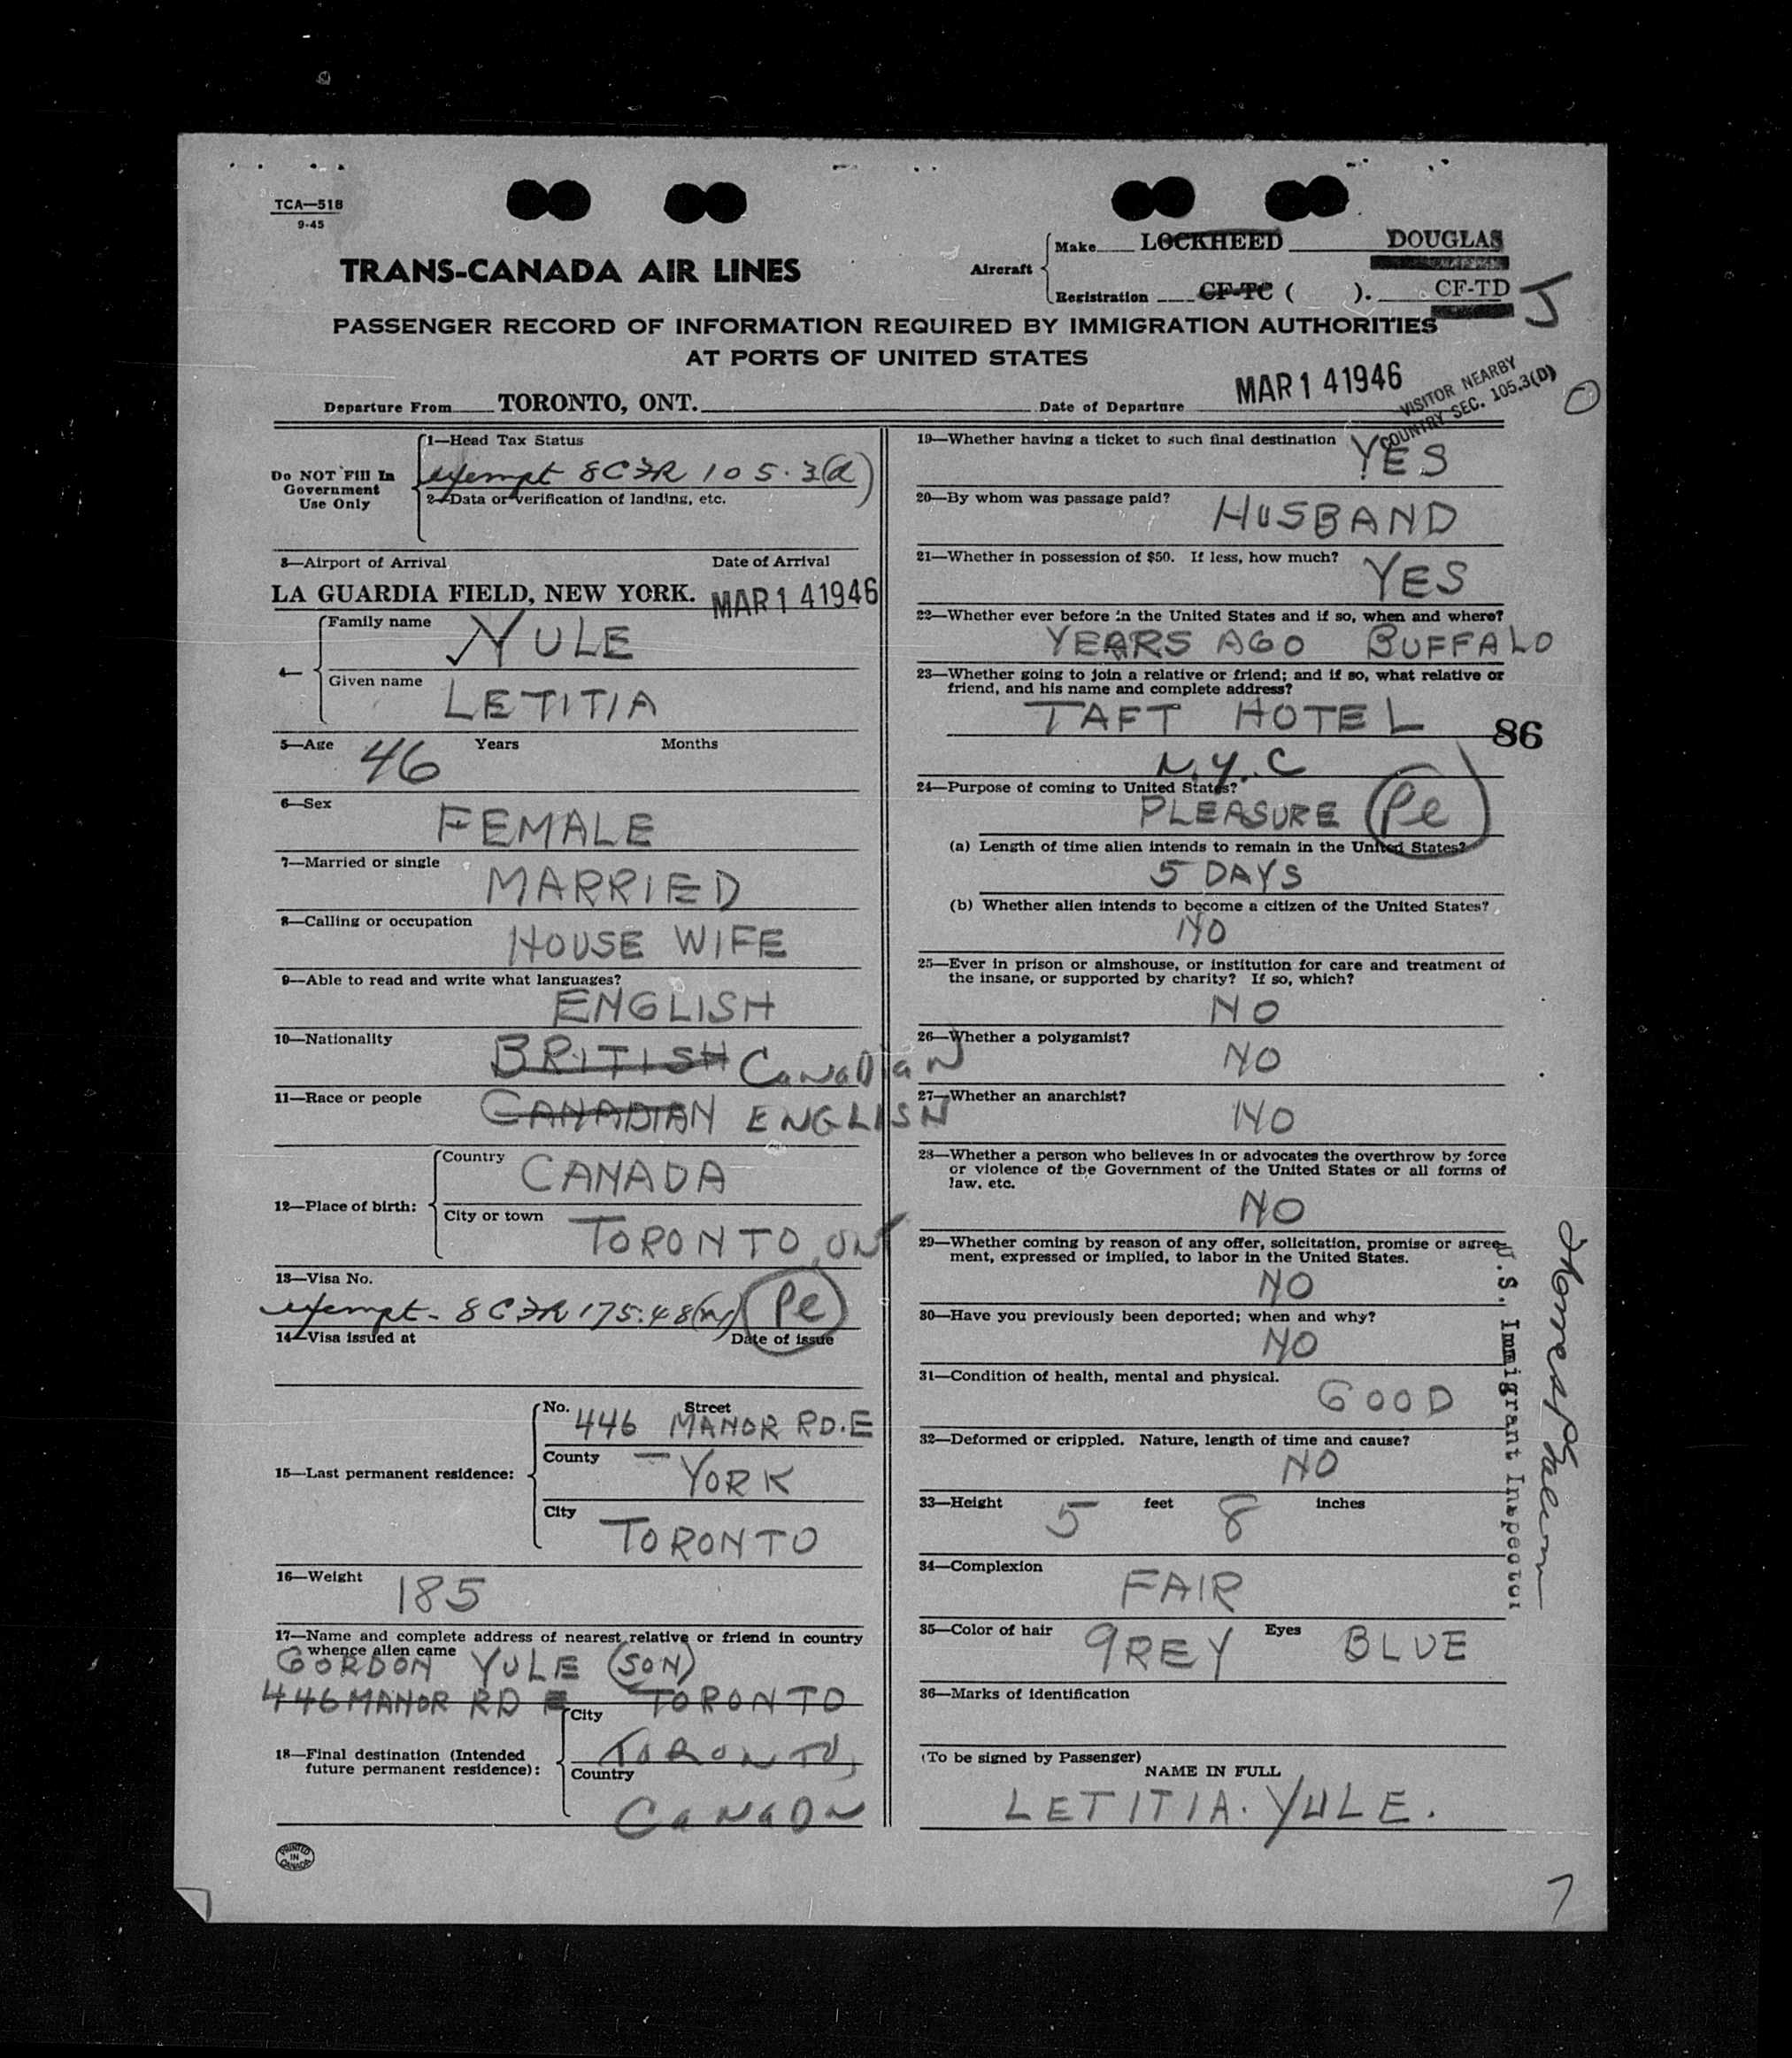 TCA—518
9-45
TRANS-CANADA AIR LINES
Aircraft
Make LOCKHEED DOUGLAS
Registration CF-TC ( ). CF-TD J
PASSENGER RECORD OF INFORMATION REQUIRED BY IMMIGRATION AUTHORITIES
AT PORTS OF UNITED STATES
Departure From TORONTO, ONT. Date of Departure MAR 14 1946
VISITOR NEARBY
COUNTRY SEC. 105.3(D)
Do NOT Fill In
Government
Use Only
1—Head Tax Status
exempt 8CFR 105.3(d)
2—Data or verification of landing, etc.
3—Airport of Arrival Date of Arrival
LA GUARDIA FIELD, NEW YORK. MAR 14 1946
4—
Family name YULE
Given name LETITIA
5—Age 46 Years Months
6—Sex
FEMALE
7—Married or single
MARRIED
8—Calling or occupation
HOUSE WIFE
9—Able to read and write what languages?
ENGLISH
10—Nationality
BRITISH CANADIAN
11—Race or people
CANADIAN ENGLISH
12—Place of birth:
Country CANADA
City or town TORONTO, ON
13—Visa No.
exempt - 8CFR 175.48(m) Pe
14—Visa issued at Date of issue
15—Last permanent residence:
No. Street
446 MANOR RD. E
County — YORK
City
TORONTO
16—Weight 185
17—Name and complete address of nearest relative or friend in country
whence alien came
GORDON YULE (SON)
446 MANOR RD E TORONTO
18—Final destination (Intended
future permanent residence):
City
TORONTO,
Country
CANADA
19—Whether having a ticket to such final destination YES
20—By whom was passage paid?
HUSBAND
21—Whether in possession of $50. If less, how much?
YES
22—Whether ever before in the United States and if so, when and where?
YEARS AGO BUFFALO
23—Whether going to join a relative or friend; and if so, what relative or
friend, and his name and complete address?
TAFT HOTEL 86
N.Y.C
24—Purpose of coming to United States?
PLEASURE Pe
(a) Length of time alien intends to remain in the United States?
5 DAYS
(b) Whether alien intends to become a citizen of the United States?
NO
25—Ever in prison or almshouse, or institution for care and treatment of
the insane, or supported by charity? If so, which?
NO
26—Whether a polygamist?
NO
27—Whether an anarchist?
NO
28—Whether a person who believes in or advocates the overthrow by force
or violence of the Government of the United States or all forms of
law, etc.
NO
29—Whether coming by reason of any offer, solicitation, promise or agree-
ment, expressed or implied, to labor in the United States.
NO
30—Have you previously been deported; when and why?
NO
31—Condition of health, mental and physical.
GOOD
32—Deformed or crippled. Nature, length of time and cause?
NO
33—Height 5 feet 8 inches
34—Complexion
FAIR
35—Color of hair GREY Eyes BLUE
36—Marks of identification
(To be signed by Passenger)
NAME IN FULL
LETITIA. YULE.
U.S. Immigrant Inspector
PRINTED
IN
CANADA
7